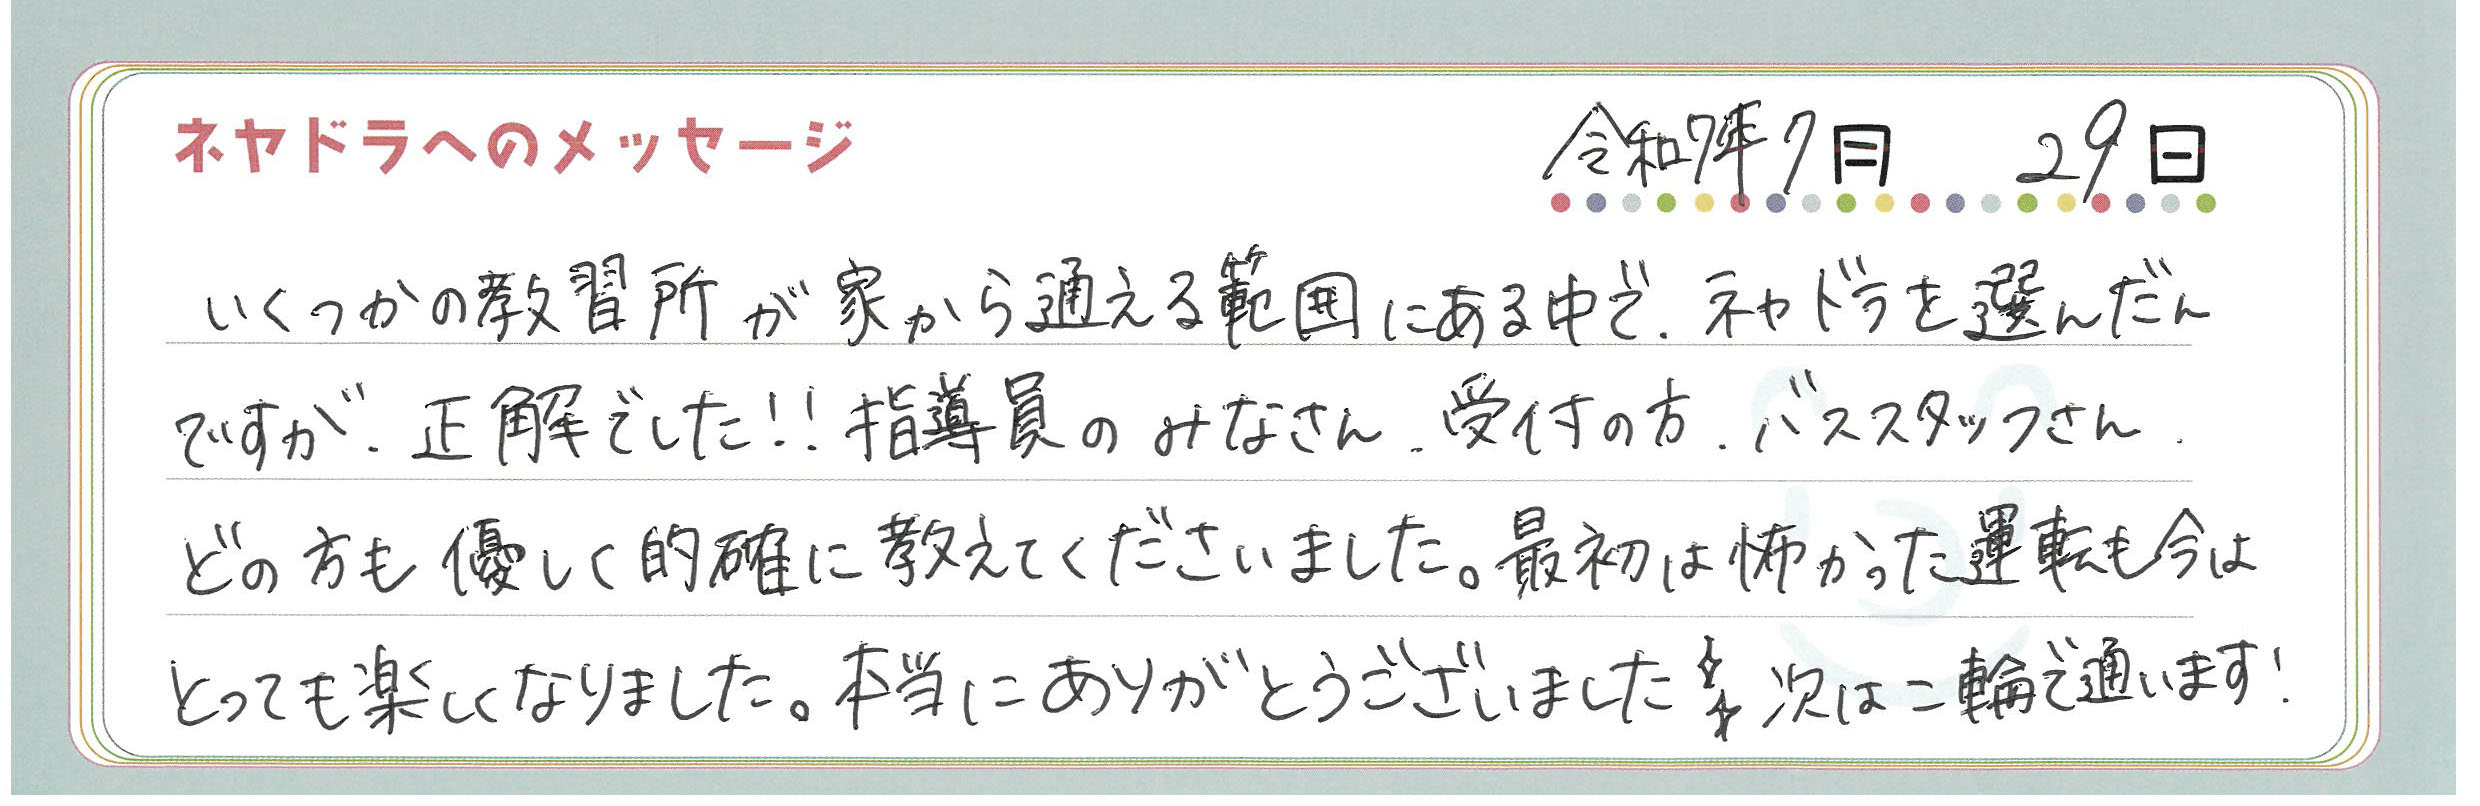 ネヤドラへのメッセージ
令和7年7月 29日
いくつかの教習所が家から通える範囲にある中で、ネヤドラを選んだん
ですが、正解でした!!指導員のみなさん、受付の方、バススタッフさん、
どの方も優しく的確に教えてくださいました。最初は怖かった運転も今は
とっても楽しくなりました。本当にありがとうございました 次は二輪で通います!